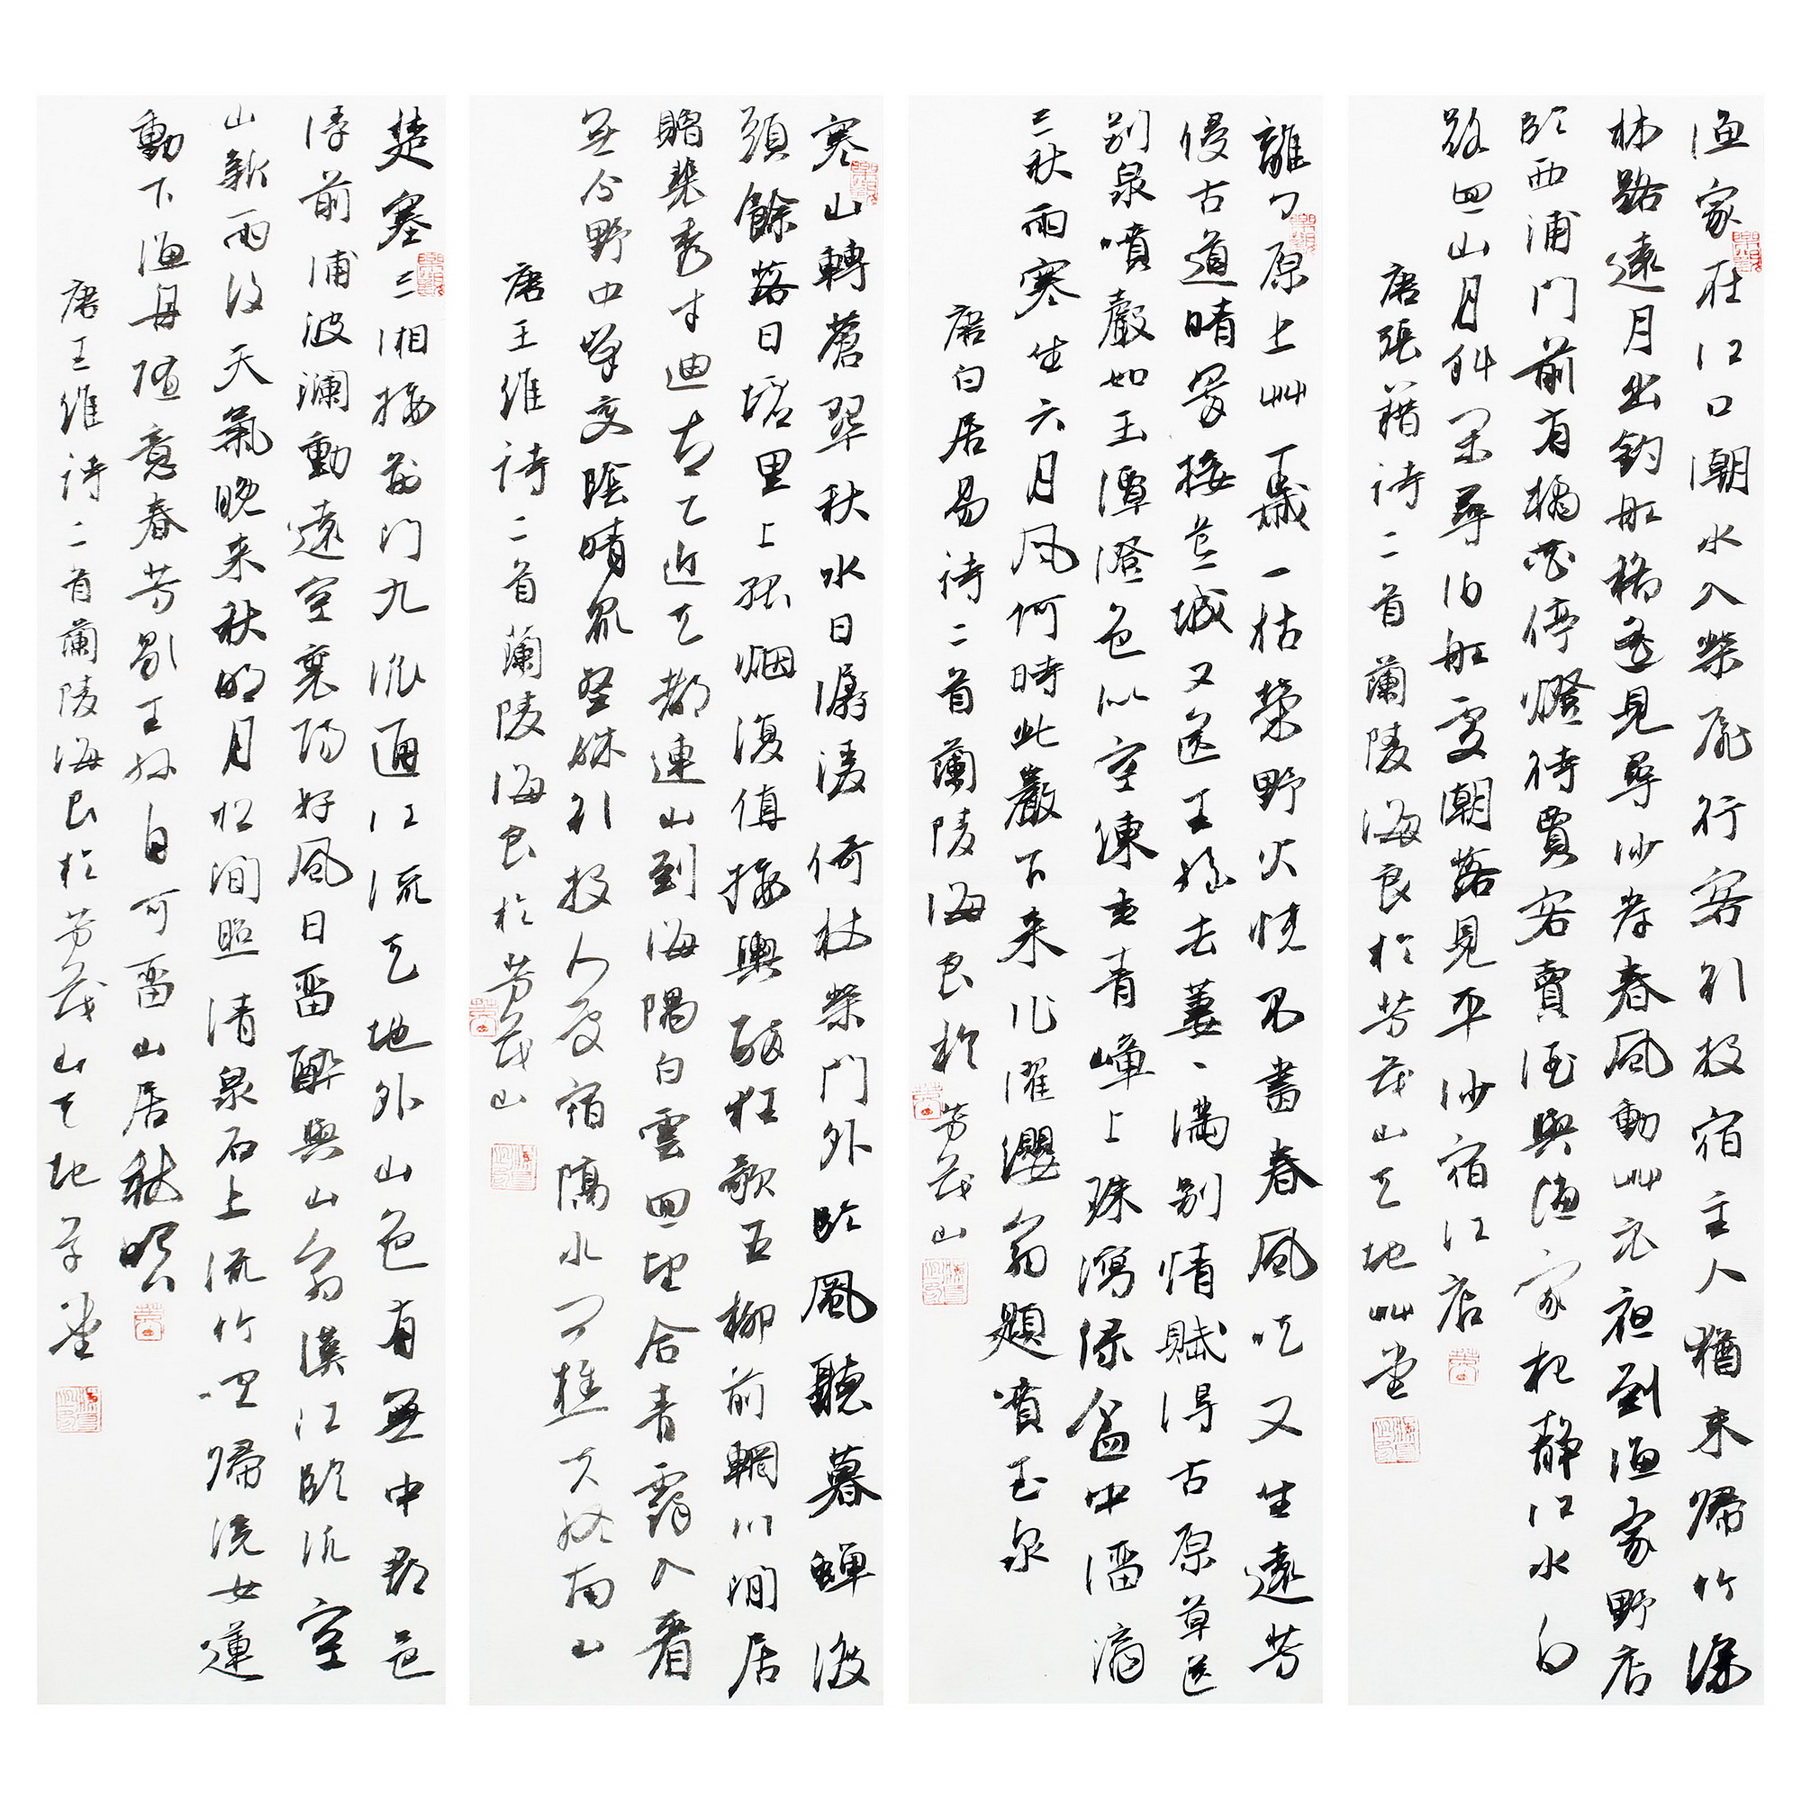 漁家在江口潮水入柴扉行客欲投宿主人猶未歸竹深
林路遠月出釣船稀遙見尋沙岸春風動艸衣夜到漁家野店
臨西浦門前有橘花停燈待賈客賣酒與漁家夜靜江水白
路回山月斜閑尋泊船處潮落見平沙宿江店
唐張籍詩二首蘭陵海良於芳茂山天地艸堂
離離原上艸一歲一枯榮野火燒不盡春風吹又生遠芳
侵古道晴翠接荒城又送王孫去萋萋滿別情賦得古原草送
別泉噴巖如玉潭澄色似空練垂青嶂上珠瀉綠盆中溜滴
三秋雨寒生六月風何時此巖下來作濯纓翁題噴玉泉
唐白居易詩二首蘭陵海良於芳茂山
寒山轉蒼翠秋水日潺湲倚杖柴門外臨風聽暮蟬渡
頭餘落日墟里上孤烟復值接輿醉狂歌五柳前輞川閒居
贈裴秀才迪太乙近天都連山到海隅白雲回望合青靄入看
無分野中峰變陰晴眾壑殊欲投人處宿隔水問樵夫終南山
唐王維詩二首蘭陵海良於芳茂山
楚塞三湘接荊門九派通江流天地外山色有無中郡邑
浮前浦波瀾動遠空襄陽好風日留醉與山翁漢江臨汎空
山新雨後天氣晚來秋明月松間照清泉石上流竹喧歸浣女蓮
動下漁舟隨意春芳歇王孫自可留山居秋暝
唐王維詩二首蘭陵海良於芳茂山天地草堂